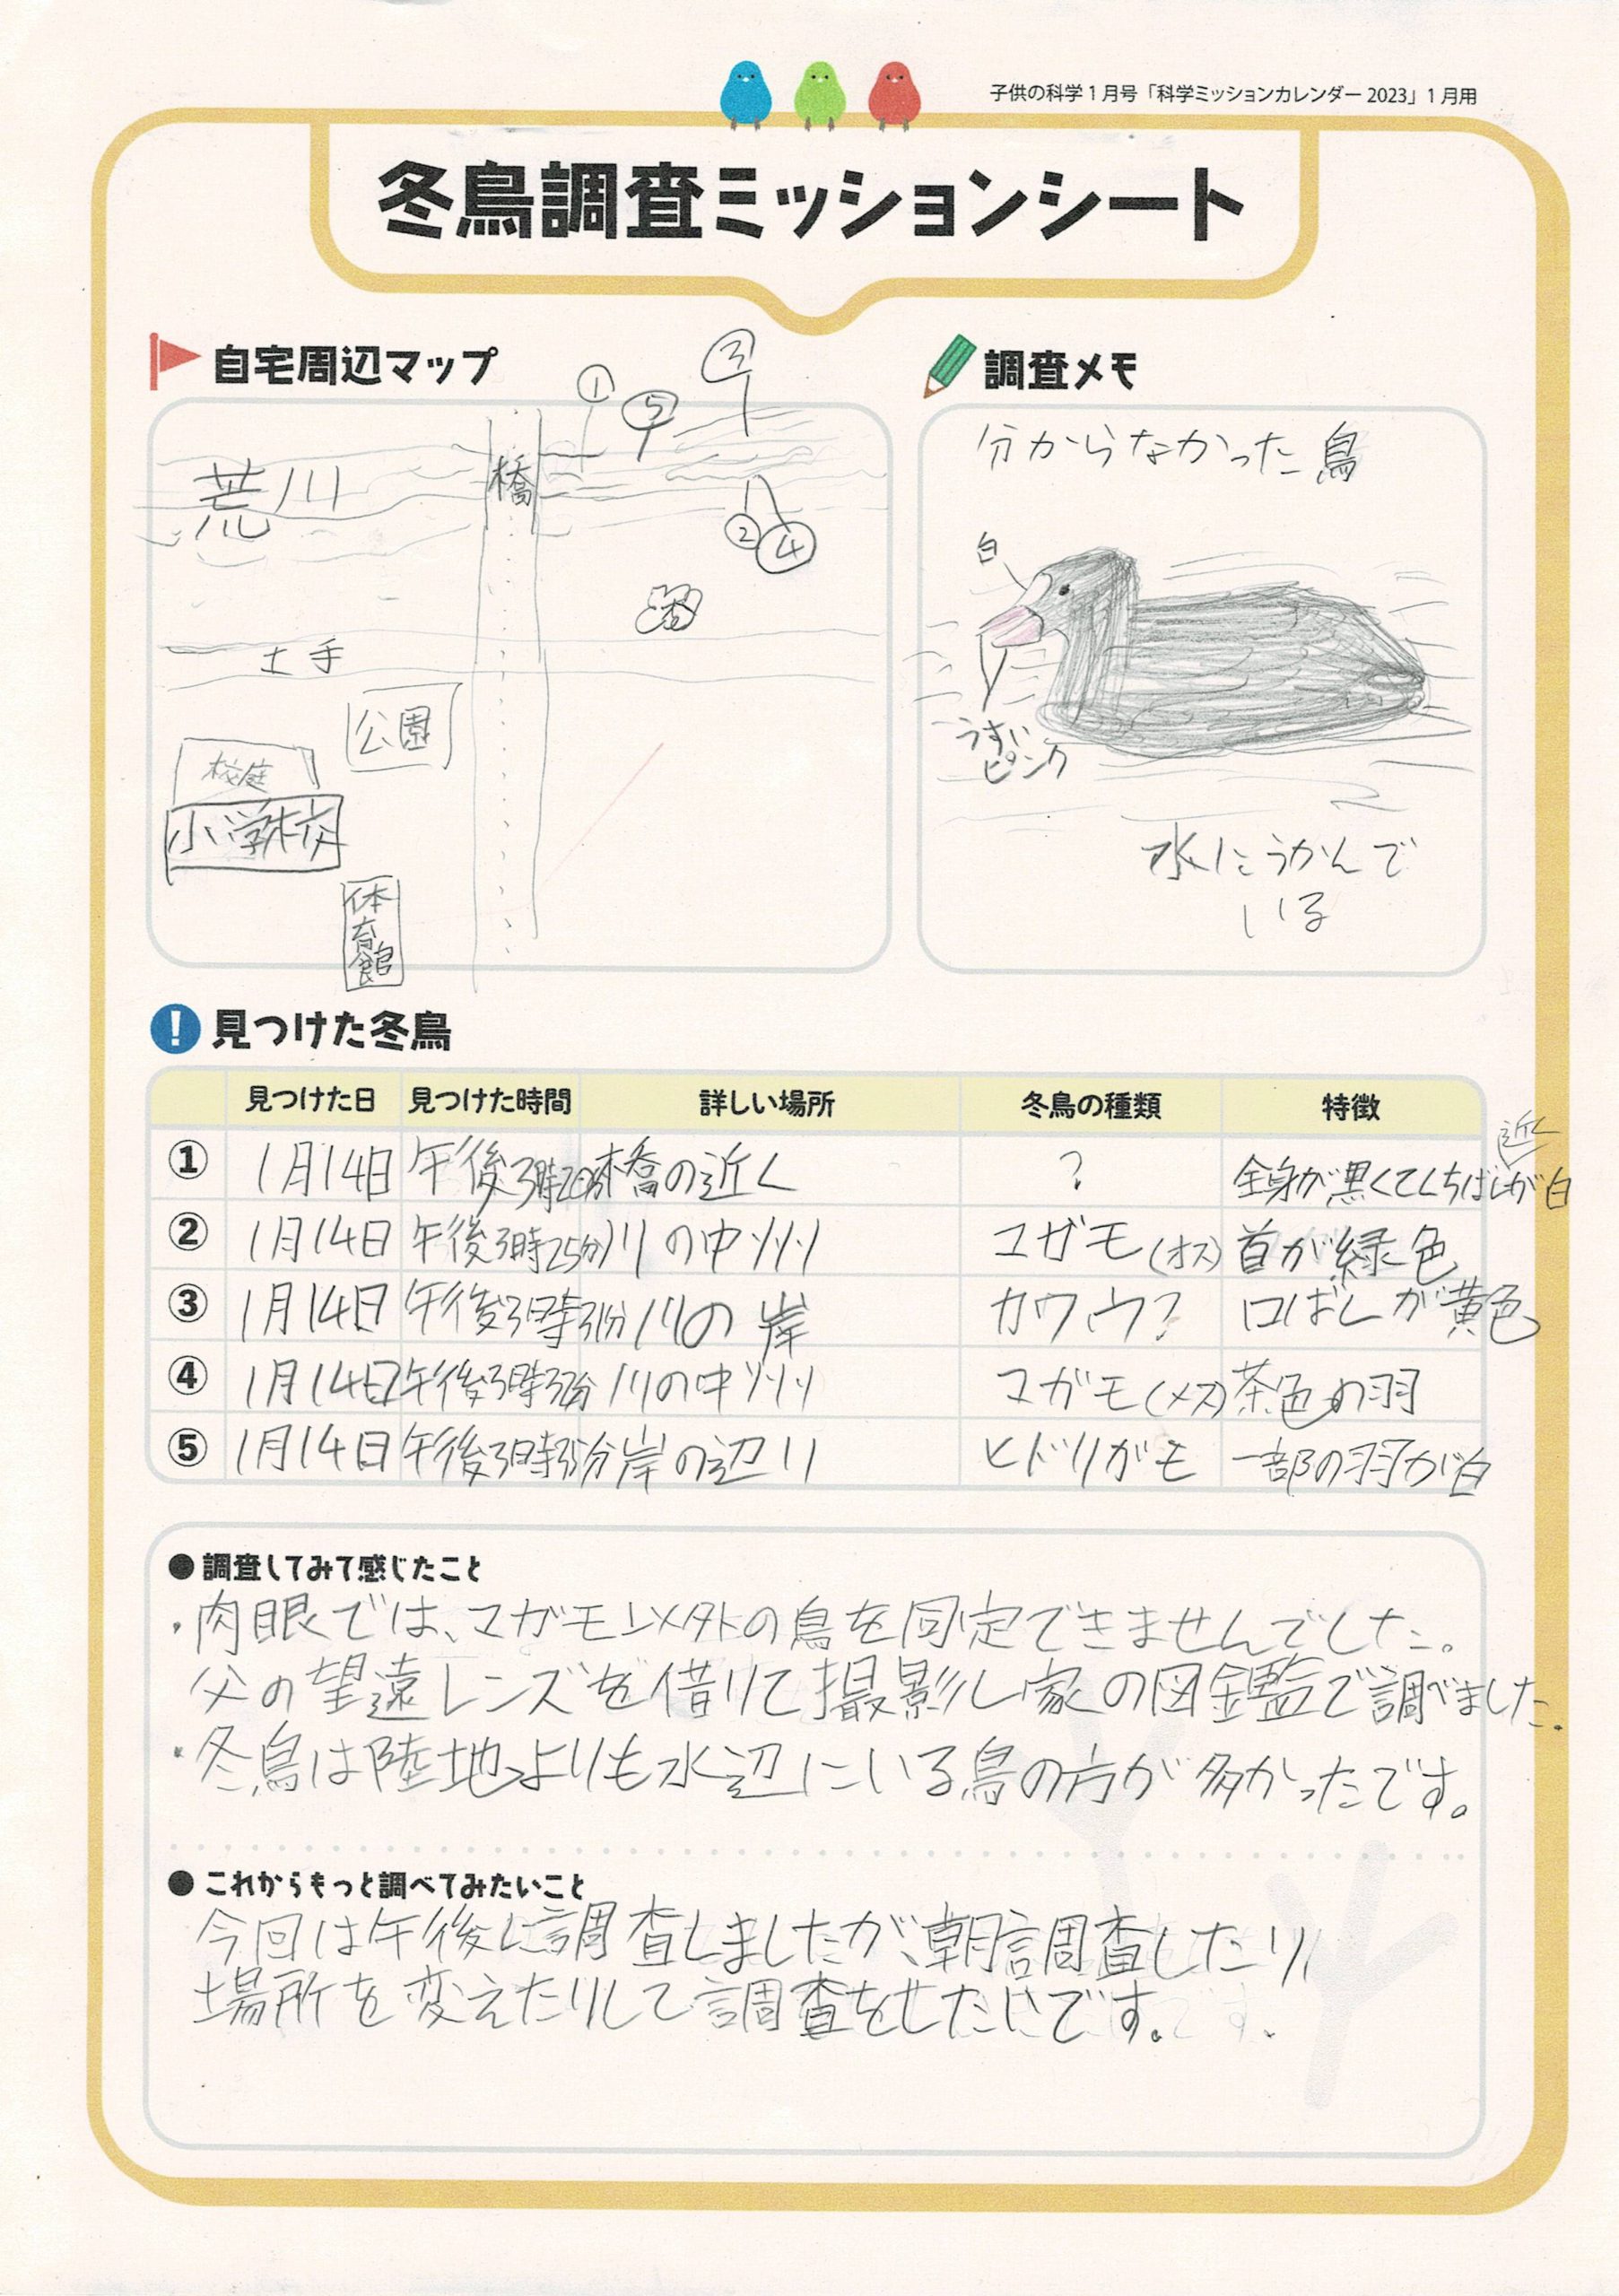 子供の科学1月号「科学ミッションカレンダー2023」1月用
冬鳥調査ミッションシート
自宅周辺マップ
① ⑤ ③
荒川
橋
② ④
土手
公園
校庭
小学校
体育館
調査メモ
分からなかった鳥
白
うすい
ピンク
水にうかんで
いる
見つけた冬鳥
見つけた日 見つけた時間 詳しい場所 冬鳥の種類 特徴
① 1月14日 午後3時20分 橋の近く ? 全身が黒くてくちばし近くが白
② 1月14日 午後3時25分 川の中州 マガモ(オス) 首が緑色
③ 1月14日 午後3時31分 川の岸 カワウ? 口ばしが黄色
④ 1月14日 午後3時32分 川の中州 マガモ(メス) 茶色の羽
⑤ 1月14日 午後3時 分 岸の辺り ヒドリガモ 一部の羽が白
●調査してみて感じたこと
・肉眼では、マガモ以外の鳥を同定できませんでした。
父の望遠レンズを借りて撮影し家の図鑑で調べました。
・冬鳥は陸地よりも水辺にいる鳥の方が多かったです。
●これからもっと調べてみたいこと
今回は午後に調査しましたが、朝調査したり
場所を変えたりして調査をしたいです。